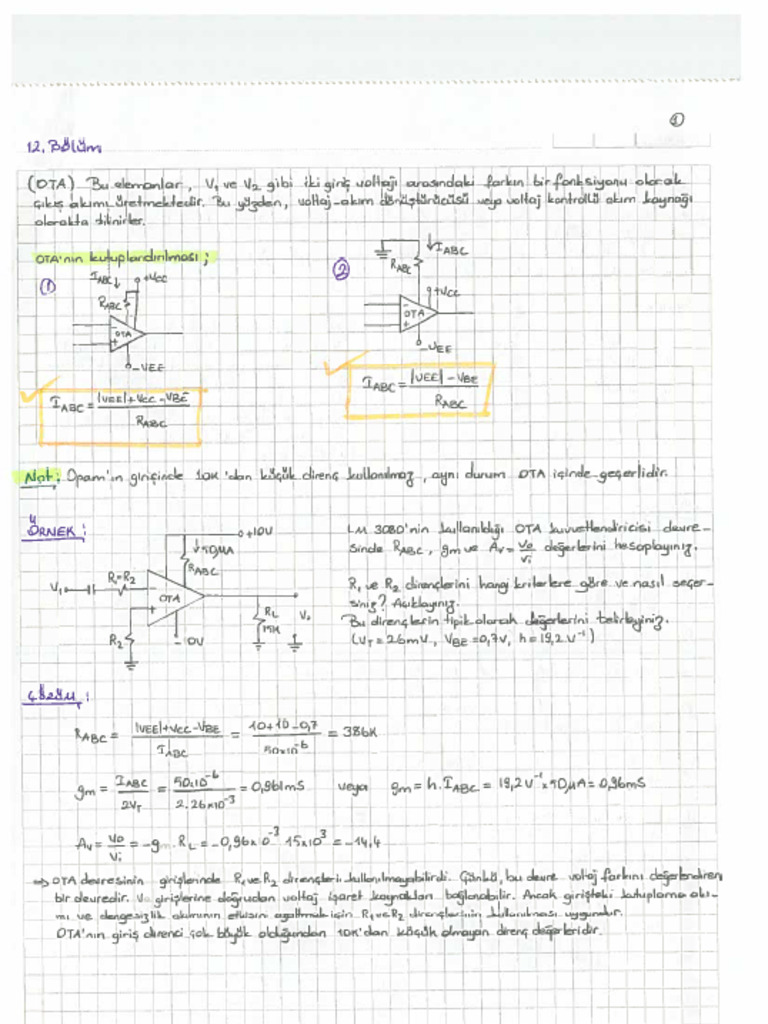 1
12. Bölüm
(OTA) Bu elemanlar, V₁ ve V₂ gibi iki giriş voltajı arasındaki farkın bir fonksiyonu olarak
çıkış akımı üretmektedir. Bu yüzden, voltaj-akım dönüştürücüsü veya voltaj kontrollü akım kaynağı
olarakta bilinirler.
OTA'nın kutuplandırılması;
① I_ABC ↓ +VCC
R_ABC
- + OTA
-VEE
I_ABC = (|VEE|+VCC-VBE) / R_ABC
② ↓ I_ABC
R_ABC
+VCC
- + OTA
-VEE
I_ABC = (|VEE| - VBE) / R_ABC
Not: Opam'ın girişinde 10K'dan küçük direnç kullanılmaz, aynı durum OTA içinde geçerlidir.
ÖRNEK:
+10V
↓50µA
R_ABC
V₁ R₁=R₂
- + OTA
R₂
R_L
15K
V₀
LM 3080'nin kullanıldığı OTA kuvvetlendiricisi devre-
sinde R_ABC, gm ve Av = Vo/Vi değerlerini hesaplayınız.
R₁ ve R₂ dirençlerini hangi kriterlere göre ve nasıl seçer-
siniz? Açıklayınız.
Bu dirençlerin tipik olarak değerlerini belirleyiniz.
(V_T=26mV, V_BE=0,7V, h=19,2 V⁻¹)
Çözüm:
R_ABC = (|VEE|+VCC-VBE) / I_ABC = (10+10-0,7) / (50x10⁻⁶) = 386K
gm = I_ABC / 2V_T = 50.10⁻⁶ / 2.26x10⁻³ = 0,961mS veya gm = h.I_ABC = 19,2V⁻¹x50µA = 0,96mS
Av = Vo/Vi = -gm R_L = -0,96x10⁻³ 15x10³ = -14,4
→ OTA devresinin girişlerinde R₁ ve R₂ dirençleri kullanılmayabilirdi. Çünkü, bu devre voltaj farkını değerlendiren
bir devredir. Ve girişlerine doğrudan voltaj işaret kaynakları bağlanabilir. Ancak girişteki kutuplama akı-
mı ve dengesizlik akımının etkisini azaltmak için R₁ ve R₂ dirençlerinin kullanılması uygundur.
OTA'nın giriş direnci çok büyük olduğundan 10K'dan küçük olmayan direnç değerleridir.